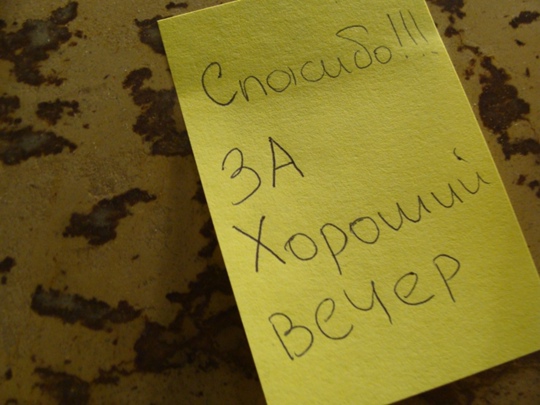 Спасибо!!!
ЗА
Хороший
Вечер